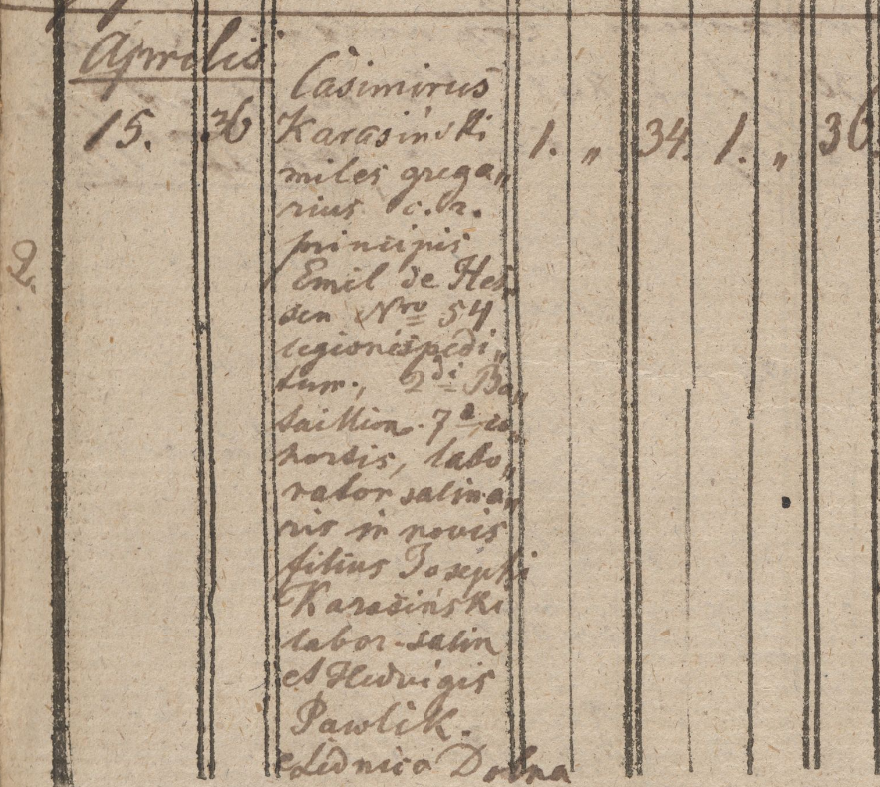 Aprilis
Casimirus
15. 36 Karasiński 1. „ 34. 1. „ 36.
miles grega„
rius c. r.
principis
Emil de Hes„
sen Nro 54
legionis pedi„
tum., 2di Ba„
taillion. 7a co„
hortis, labo„
rator salina„
ris in novis
filius Josephi
Karasiński
labor. salin
et Hedvigis
Pawlik.
e Lednica Dolna
2.